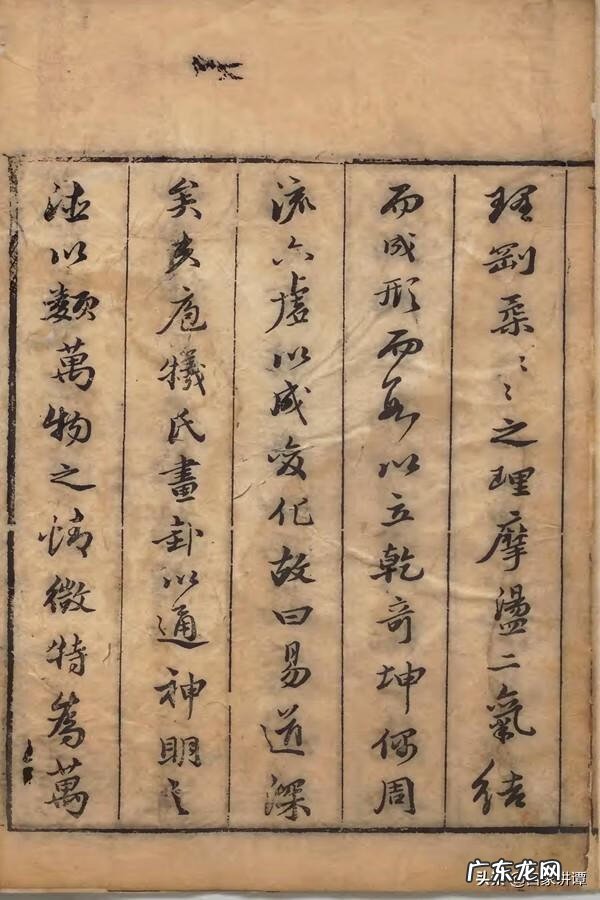 剛柔〻〻之理摩盪二氣結
而成形而以立乾奇坤偶周
流六虛以成變化故曰易道深
矣夫庖犧氏畫卦以通神明之
德以類萬物之情微特為萬
广东龙网
头条 @百家讲谭